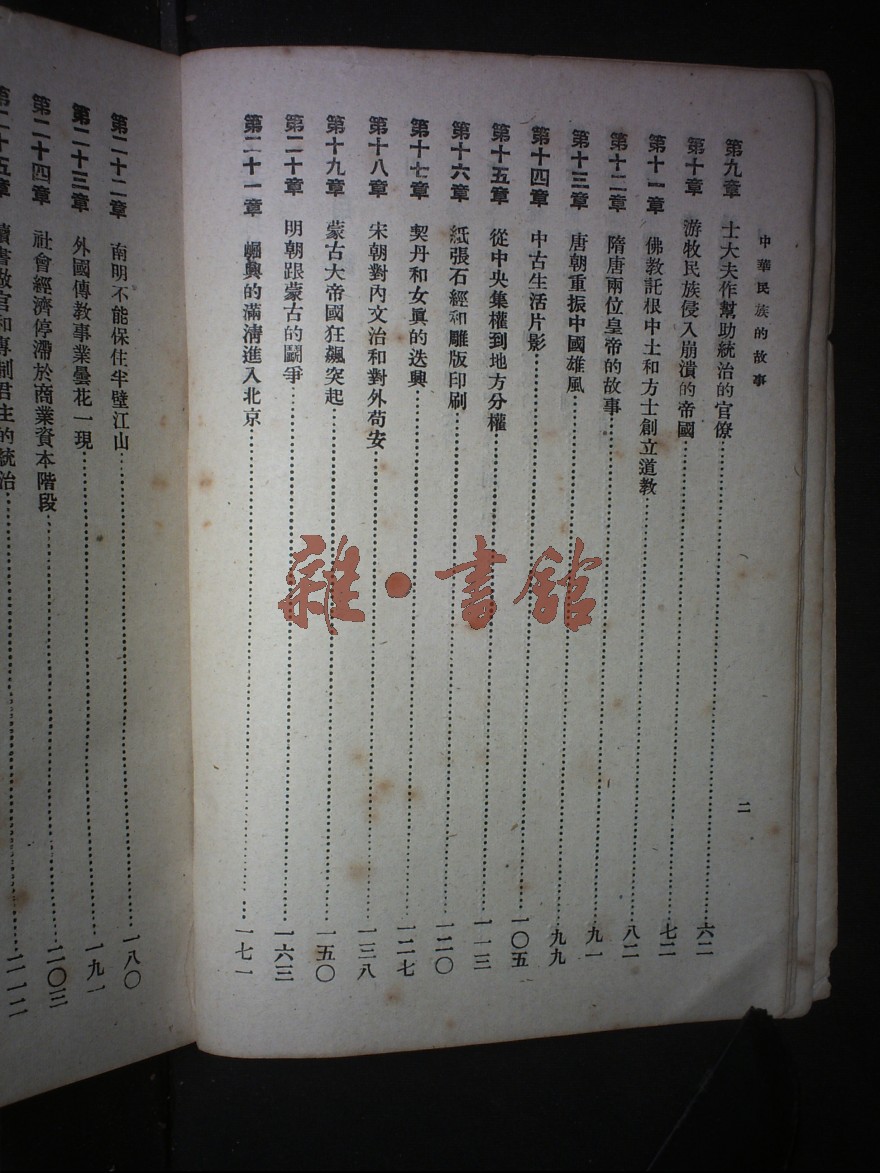 中華民族的故事
二
第九章 士大夫作幫助統治的官僚……六二
第十章 游牧民族侵入崩潰的帝國……七二
第十一章 佛教託根中土和方士創立道教……八二
第十二章 隋唐兩位皇帝的故事……九一
第十三章 唐朝重振中國雄風……九九
第十四章 中古生活片影……一〇五
第十五章 從中央集權到地方分權……一一三
第十六章 紙張石經和雕版印刷……一二〇
第十七章 契丹和女眞的迭興……一二七
第十八章 宋朝對內文治和對外苟安……一三八
第十九章 蒙古大帝國狂飆突起……一五〇
第二十章 明朝跟蒙古的鬭爭……一六三
第二十一章 崛興的滿淸進入北京……一七一
第二十二章 南明不能保住半壁江山……一八〇
第二十三章 外國傳教事業曇花一現……一九一
第二十四章 社會經濟停滯於商業資本階段……二〇三
第二十五章 讀書做官和專制君主的統治……二一二
雜·書館